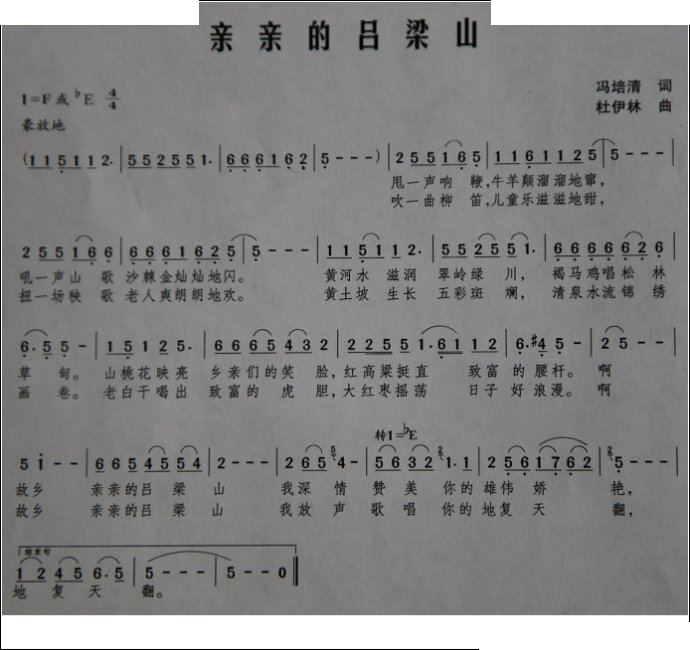 亲亲的吕梁山
1=F或♭E 4/4
冯培清 词
杜伊林 曲
豪放地
(1 1 5 1 1 2. | 5 5 2 5 5 1. | 6 6 6 1 6 2 | 5 - - - ) | 2 5 5 1 6 5 | 1 1 6 1 1 2 5 | 5 - - - |
甩一声响 鞭,牛羊颠溜溜地窜,
吹一曲柳 笛,儿童乐滋滋地甜,
2 5 5 1 6 6 | 6 6 6 1 6 2 5 | 5 - - - | 1 1 5 1 1 2 | 5 5 2 5 5 1. | 6 6 6 6 6 2 6 |
吼一声山 歌 沙棘金灿灿地闪。 黄河水 滋润 翠岭绿 川, 褐马鸡唱松 林
扭一场秧 歌 老人爽朗朗地欢。 黄土坡 生长 五彩斑 斓, 清泉水流锦 绣
6. 5 5 - | 1 5 1 2 5. | 6 6 6 5 4 3 2 | 2 2 5 5 1. 6 1 1 2 | 6. #4 5 - | 2 5 - - |
草 甸。 山桃花映亮 乡亲们的笑 脸,红高粱挺直 致富 的腰杆。 啊
画 卷。 老白干喝出 致富的 虎 胆,大红枣摇荡 日子 好浪漫。 啊
转1=♭E
5 i - - | 6 6 5 4 5 5 4 | 2 - - - | 2 6 5 4 - | 5 6 3 2 1. 1 | 2 5 6 1 7 6 2 | 5 - - - |
故乡 亲亲的吕 梁 山 我深 情 赞美 你的 雄伟 娇 艳,
故乡 亲亲的吕 梁 山 我放 声 歌唱 你的 地复 天 翻,
结束句
1 2 4 5 6. 5 | 5 - - - | 5 - - 0 ‖
地 复 天 翻。